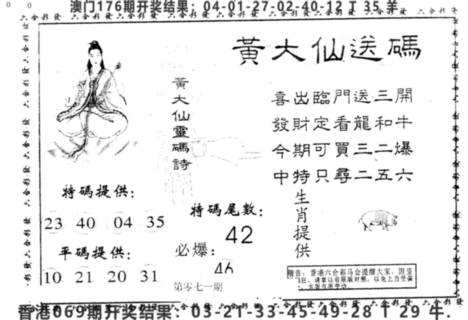 澳门176期开奖结果：04-01-27-02-40-12 T 35 羊.
黃大仙送碼
黃大仙靈碼詩
喜出臨門送三開
發財定看龍和牛
今期可買三二爆
中特只尋二五六
特碼提供：
23 40 04 35
平碼提供：
10 21 20 31
特碼尾數：
42
必爆：
46
第零七一期
生肖提供
香港069期开奖结果：03-21-33-45-49-28 T 29 牛.